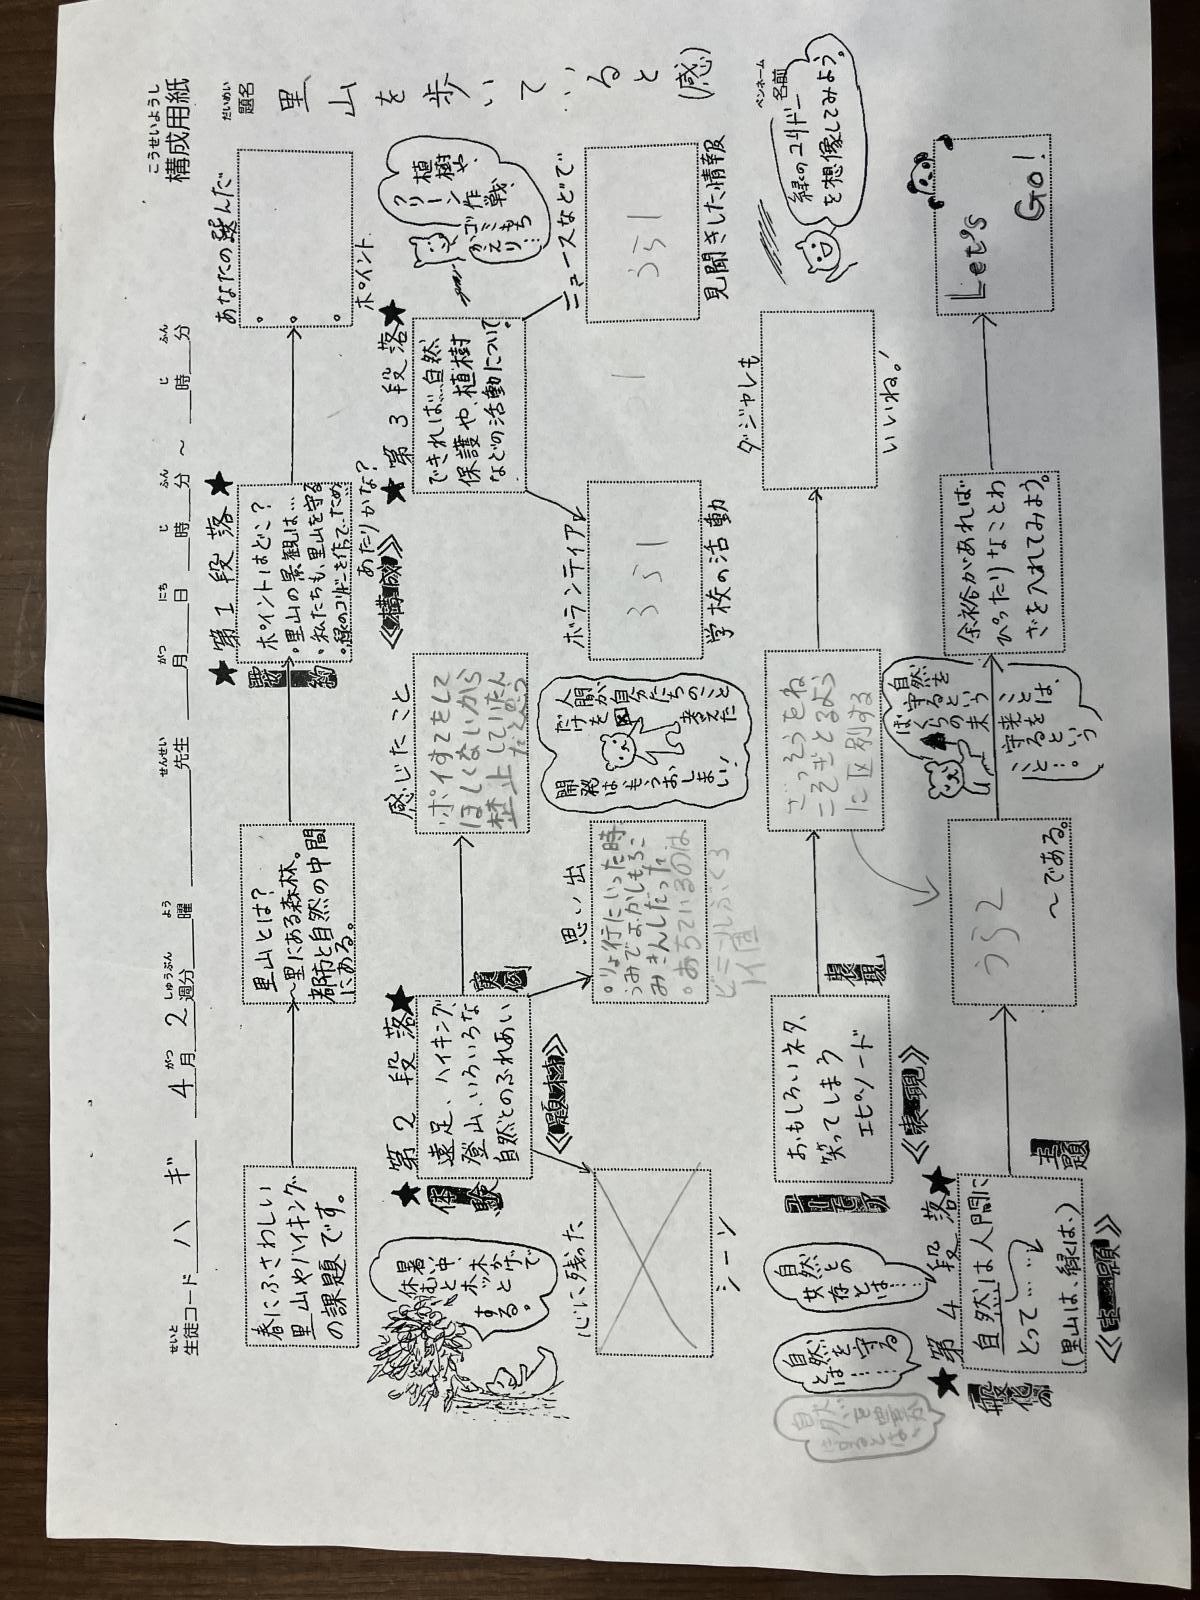 こうせいようし
構成用紙
せいと
生徒コード ハギ 4月2週分 曜 先生 月 日 時 分 ～ 時 分
がつ しゅうぶん よう せんせい がつ にち じ ふん じ ふん
だいめい
題名
里山を歩いていると(感)
ペンネーム
名前
春にふさわしい
里山やハイキング
の課題です。
里山とは?
～里にある森林。
都市と自然の中間
にある。
★第1段落★
要約
ポイントはどこ?
・里山の景観は…
・私たちも、里山を守る
・緑のコリドーを作で…ため
あたりかな?
あなたの選んだ
ポイント
《構成》
★第2段落★
体験
実例
遠足、ハイキング、
登山、いろいろな
自然とのふれあい
《題材》
休むと中、
暑い中、
木かげで
ホッと
する。
心に残った
シーン
思い出
・りょ行にいった時
うみでよ
・おちているのは
ビニルぶくろ
感じたこと
・ポイすてをして
ほしくないから
禁止していたん
だと思う
人間が
自分たちのこと
だけを考えた
開発は、もうおしまい!
★第3段落★
できれば…自然
保護や、植樹
などの活動について。
植樹や、
クリーン作戦、
ゴミもち
かえり…
ボランティア
うら1
学校の活動
ニュースなどで
うら1
見聞きした情報
ユーモア
表現
おもしろいネタ、
笑ってしまう
エピソード
《表現》
ごっそうをね
こそぎとるよう
に区別する
ダジャレも
いいね。
緑のコリドー
を想像してみよう。
自然との
共存とは……
自然を守る
とは……
★第4段落★
一般化の
主題
自然は人間に
とって……
(里山は、緑は、)
《主題》
うら2
～である。
自然を
守るという
ことは、
ぼくらの未来を
守るという
こと…。
余裕があれば
ぴったりなことわ
ざを入れてみよう。
Let's
Go!